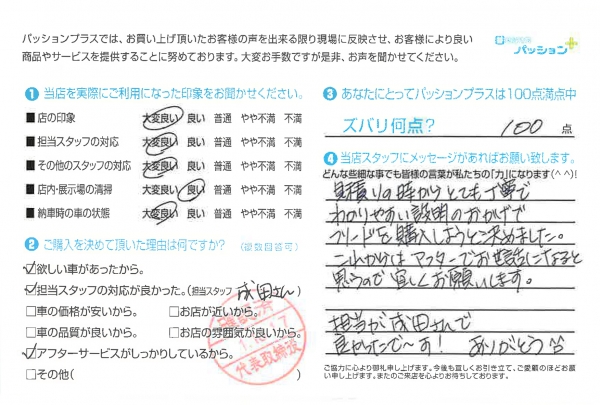 パッションプラスでは、お買い上げ頂いたお客様の声を出来る限り現場に反映させ、お客様により良い
商品やサービスを提供することに努めております。大変お手数ですが是非、お声を聞かせてください。
パッション+
1 当店を実際にご利用になった印象をお聞かせください。
■店の印象 大変良い 良い 普通 やや不満 不満
■担当スタッフの対応 大変良い 良い 普通 やや不満 不満
■その他のスタッフの対応 大変良い 良い 普通 やや不満 不満
■店内・展示場の清掃 大変良い 良い 普通 やや不満 不満
■納車時の車の状態 大変良い 良い 普通 やや不満 不満
2 ご購入を決めて頂いた理由は何ですか? (複数回答可)
☑欲しい車があったから。
☑担当スタッフの対応が良かった。(担当スタッフ 成田さん)
□車の価格が安いから。 □お店が近いから。
□車の品質が良いから。 □お店の雰囲気が良いから。
☑アフターサービスがしっかりしているから。
□その他( )
確認済
代表取締役
3 あなたにとってパッションプラスは100点満点中
ズバリ何点? 100 点
4 当店スタッフにメッセージがあればお願い致します。
どんな些細な事でも皆様の言葉が私たちの「力」になります(^^)!
見積りの時からとても丁寧で
わかりやすい説明のおかげで
フリードを購入しようと決めました。
これからは アフターでお世話になると
思うので宜しくお願いします。
担当が成田さんで
良かったで〜す! ありがとう
ご協力に心より御礼申し上げます。今後も宜しくお引き立て、ご愛顧のほどお願
い申し上げます。またのご来店を心よりお待ちしております。